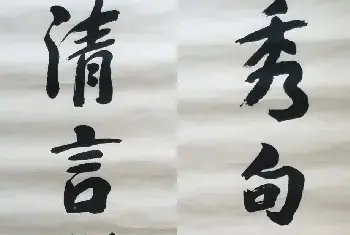 秀句
清言